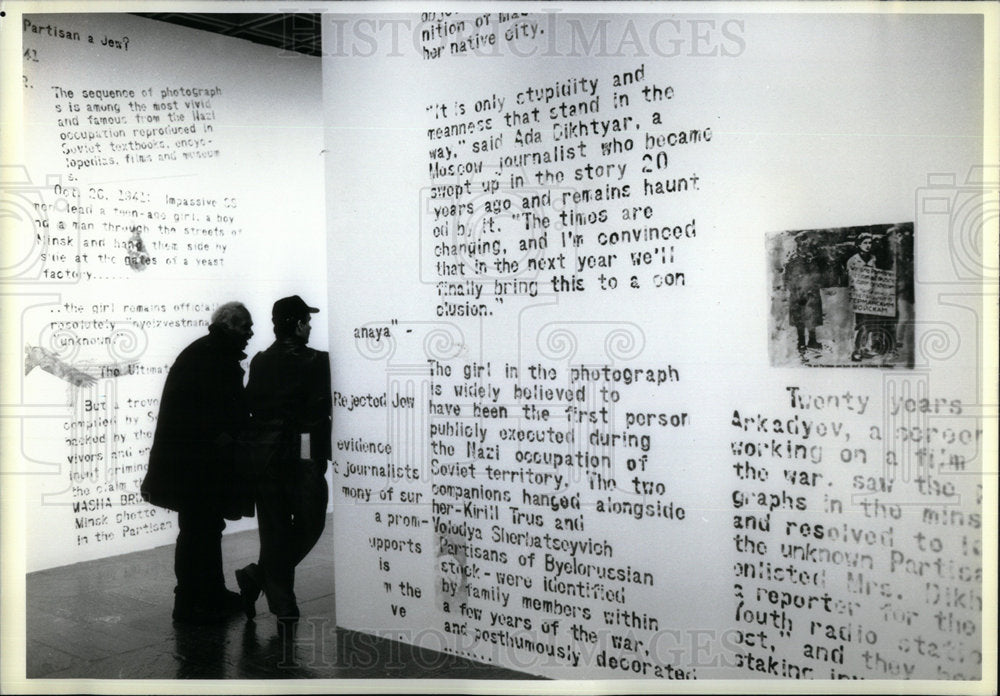 Partisan a Jew?
41
The sequence of photograph
s is among the most vivid
and famous from the Nazi
occupation reproduced in
Soviet textbooks, encyc-
lopedias, films and museum
s.
Oct. 26, 1941: Impassive SS
men lead a teen-age girl, a boy
nd a man through the streets of
Minsk and hang them side by
side at the gates of a yeast
factory......
..the girl remains officiall
resolutely "nyeizvestnana
"unknown."
The Ultimat
But a trove
compiled by S
backed by the
vivors and en
the claim th
MASHA BR
Minsk Ghetto
in the Partisan
nition of Mas
her native city.
"It is only stupidity and
meanness that stand in the
way," said Ada Dikhtyar, a
Moscow journalist who became
swept up in the story 20
years ago and remains haunt
ed by it. "The times are
changing, and I'm convinced
that in the next year we'll
finally bring this to a con
clusion."
anaya" -
Rejected Jew
evidence
t journalists
mony of sur
a prom-
upports
is
m the
ve
The girl in the photograph
is widely believed to
have been the first person
publicly executed during
the Nazi occupation of
Soviet territory. The two
companions hanged alongside
her-Kirill Trus and
Volodya Sherbatseyvich
Partisans of Byelorussian
stock-were identified
by family members within
a few years of the war,
and posthumously decorated
Twenty years
Arkadyev, a screen
working on a film
the war, saw the
graphs in the mins
and resolved to
the unknown Partisa
enlisted Mrs. Dikh
a reporter for the
Youth radio statio
ost," and they
staking inv
HISTORIC IMAGES
HISTORIC IMAGES
HISTORIC IMAGES